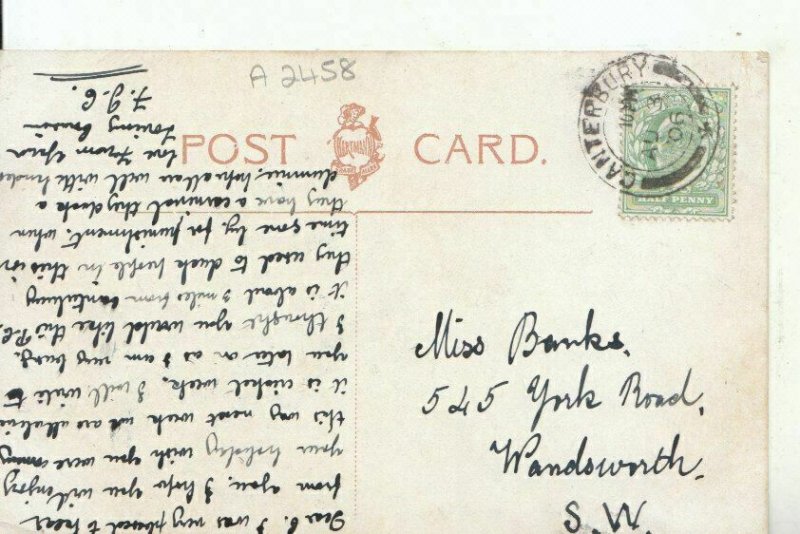 A 2458
POST CARD.
HARTMANN
CANTERBURY
10 PM
AU 3
06
HALF PENNY
Miss Banks.
545 York Road.
Wandsworth.
S.W.
Dear C. I was very pleased to hear
from you. I hope you will enjoy
your holiday wish you were coming
this way next week we are all alive
it is cricket week, I will write to
you later on as I am very busy.
I thought you would like this P.C.
it is about 3 miles from Canterbury
they used to duck people in this in
time gone by, for punishment. when
they have a carnival they duck a
dummie, hope all are well with
love from your
loving Cousin
F.J.C.